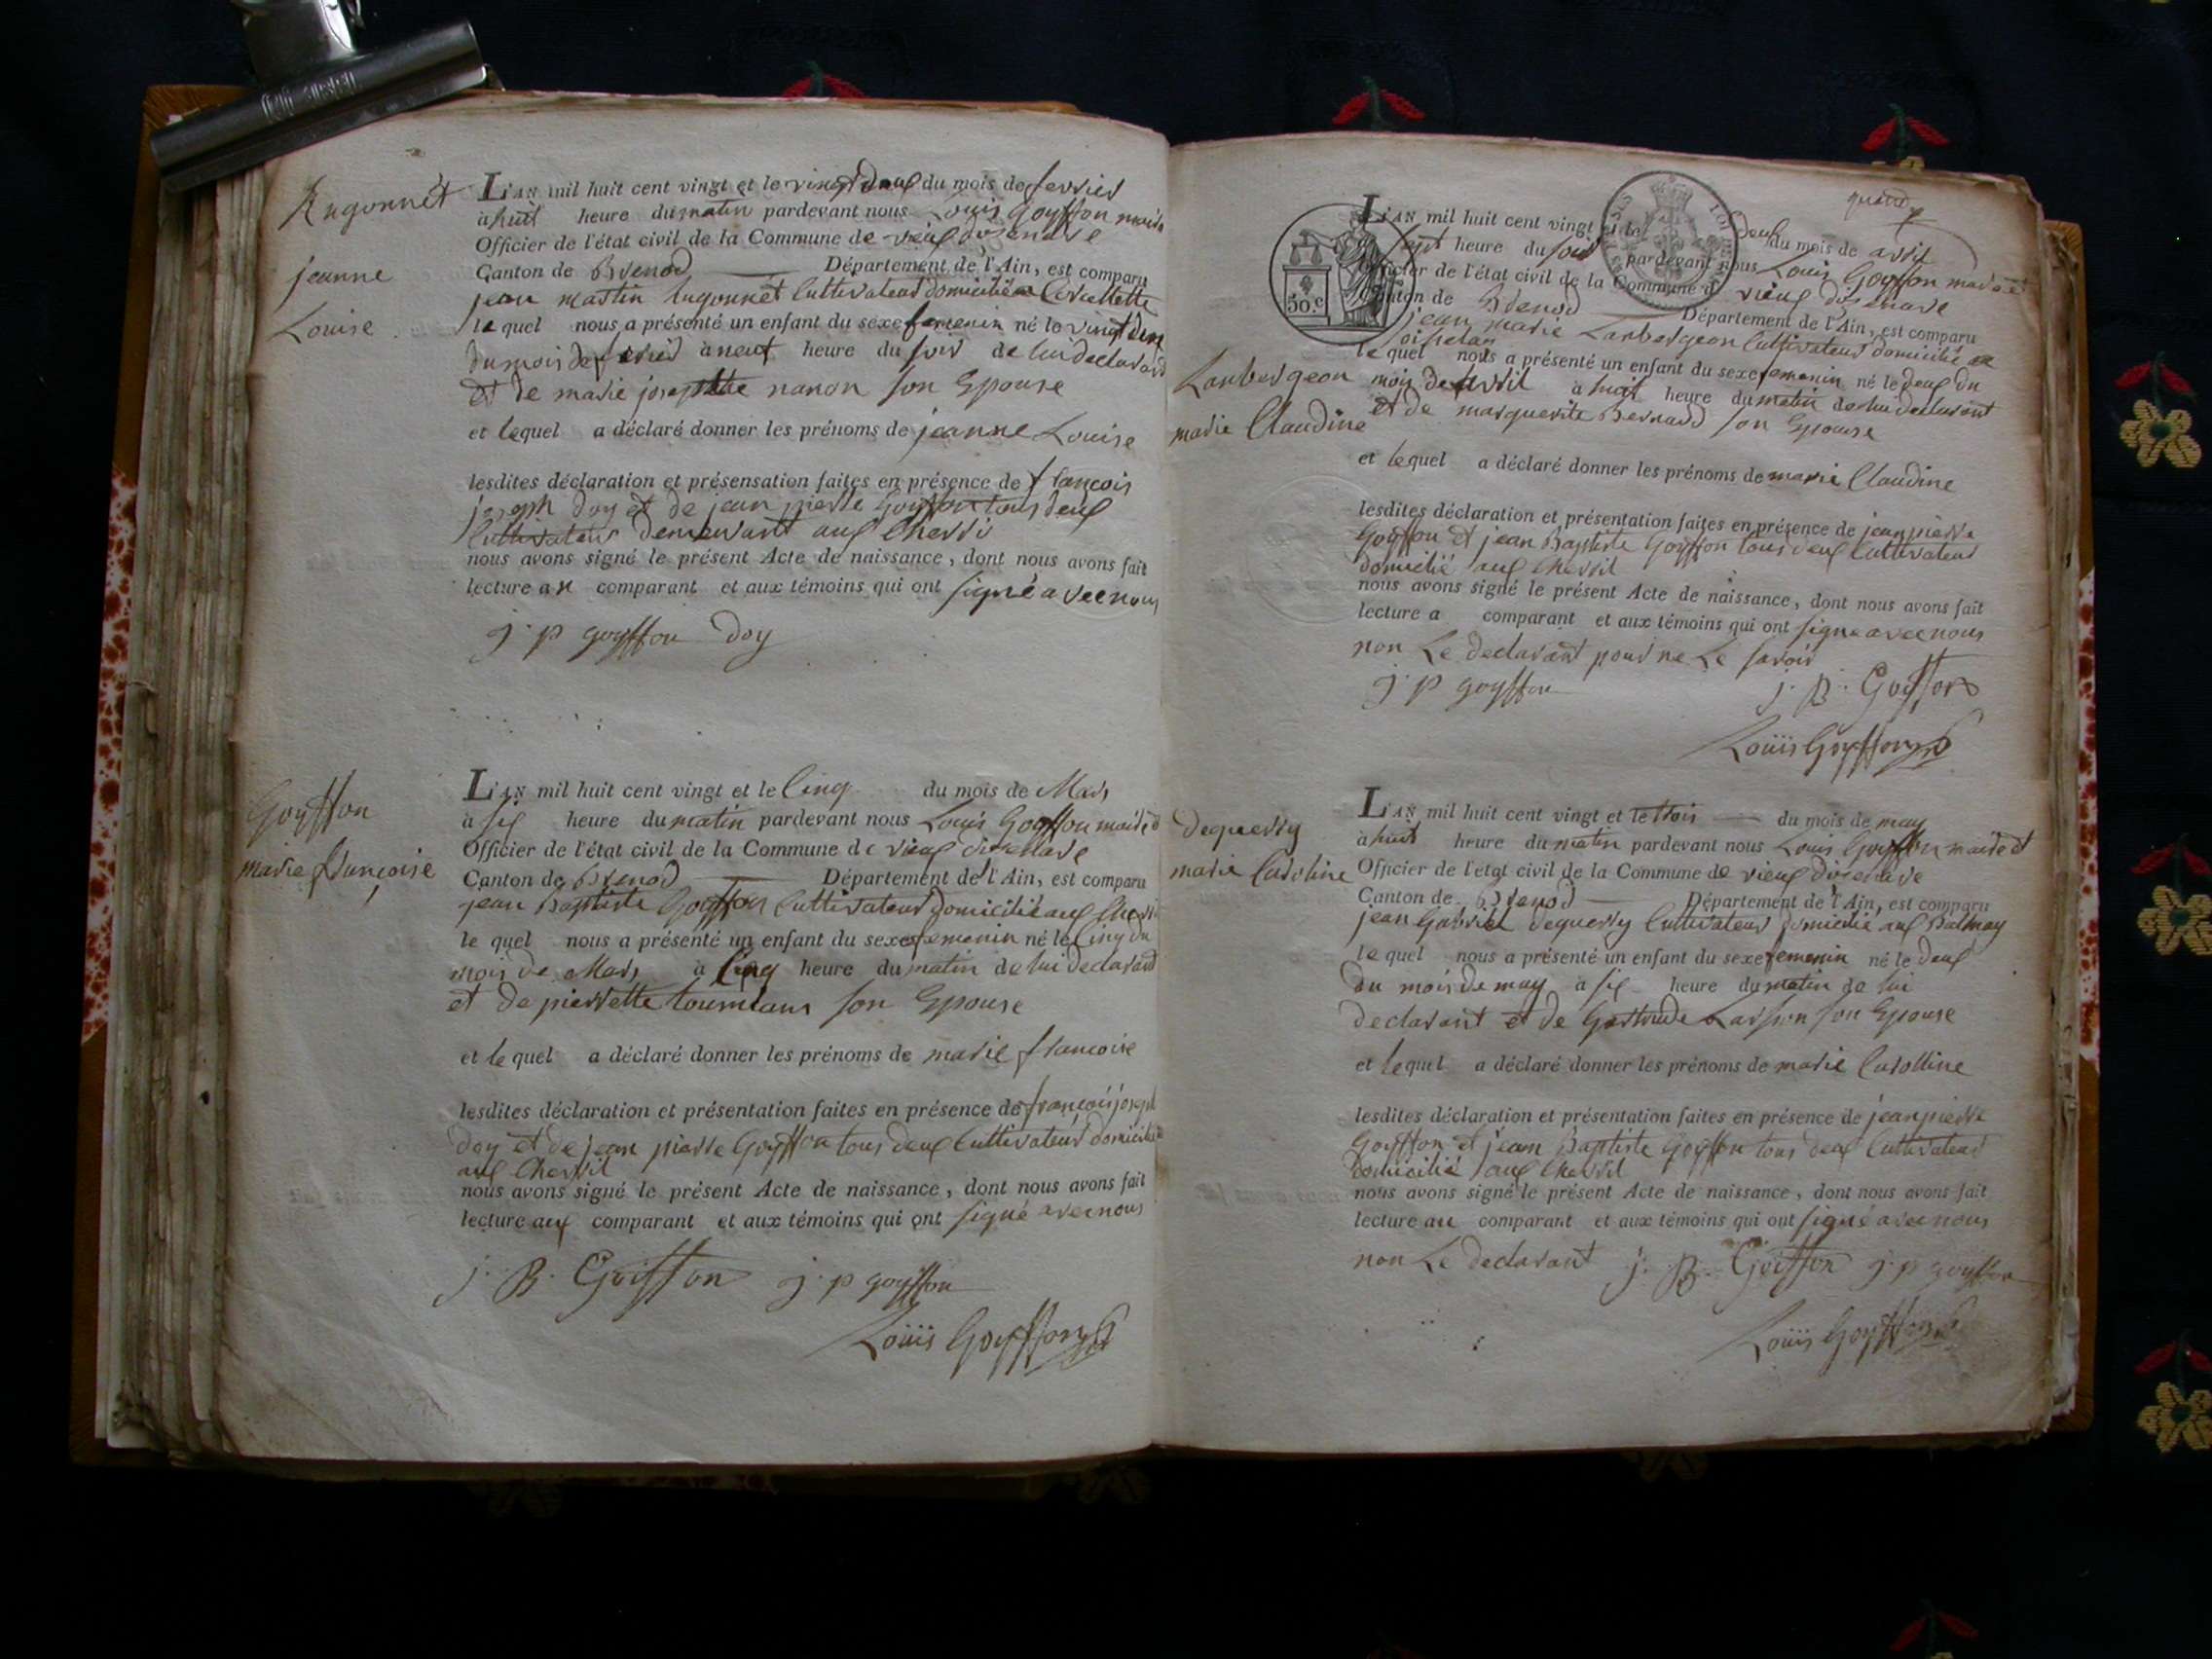 Rugonnèt
jeanne
Louise
L'AN mil huit cent vingt et le vingt deux du mois de fevrier
a huit heure du matin pardevant nous Louis Goyffon maire
Officier de l'état civil de la Commune de vieux disenave
Canton de Brenod Département de l'Ain, est comparu
jean martin Rugonnet Cultivateur domicilié
le quel nous a présenté un enfant du sexe femenin né le vingt deux
du mois de fevrier à neuf heure du soir de lui declarant
et de marie josephte nanon son Epouse
et lequel a déclaré donner les prénoms de jeanne Louise
lesdites déclaration et présensation faites en présence de francois
joseph doy et de jean pierre Goyffon tous deux
Cultivateur demeurant aux Chervis
nous avons signé le présent Acte de naissance, dont nous avons fait
lecture au comparant et aux témoins qui ont signé avec nous
j. p goyffon doy
Goyffon
marie françoise
L'AN mil huit cent vingt et le Cinq du mois de Mars
à six heure du matin pardevant nous Louis Goyffon maire et
Officier de l'état civil de la Commune de vieux disenave
Canton de Brenod Département de l'Ain, est comparu
jean Baptiste Goyffon Cultivateur domicilié aux
le quel nous a présenté un enfant du sexe femenin né le Cinq du
mois de Mars à Cinq heure du matin de lui declarant
et de pierrette tournians son Epouse
et le quel a déclaré donner les prénoms de marie francoise
lesdites déclaration et présentation faites en présence de francois joseph
doy et de jean pierre Goyffon tous deux Cultivateur domicilié
aux Chervil
nous avons signé le présent Acte de naissance, dont nous avons fait
lecture aux comparant et aux témoins qui ont signé avec nous
j. B. Goiffon j. p goyffon
Louis Goyffon
50 c
L'AN mil huit cent vingt et le deux du mois de avril
sept heure du soir pardevant nous Louis Goyffon maire et
Officier de l'état civil de la Commune d vieux disenave
Canton de Brenod Département de l'Ain, est comparu
jean marie Lanbergeon Cultivateur domicilié
le quel nous a présenté un enfant du sexe femenin né le deux du
Lanbergeon
marie Claudine
mois de avril à huit heure du matin de lui declarant
et de marguerite Bernard son Epouse
et lequel a déclaré donner les prénoms de marie Claudine
lesdites déclaration et présentation faites en présence de jean pierre
Goyffon et jean Baptiste Goyffon tous deux Cultivateur
domicilié aux Chervil
nous avons signé le présent Acte de naissance, dont nous avons fait
lecture a comparant et aux témoins qui ont signe avec nous
non Le declarant pour ne Le savoir
j. p goyffon j. B. Goiffon
Louis Goyffon
Dequerry
marie Caroline
L'AN mil huit cent vingt et le trois du mois de may
à huit heure du matin pardevant nous Louis Goyffon maire et
Officier de l'état civil de la Commune de vieux disenave
Canton de Brenod Département de l'Ain, est comparu
jean Gabriel Dequerry Cultivateur domicilié aux Balmay
le quel nous a présenté un enfant du sexe femenin né le deux
du mois de may à six heure du matin de lui
declarant et de Gertrude Larson son Epouse
et lequel a déclaré donner les prénoms de marie Carolline
lesdites déclaration et présentation faites en présence de jean pierre
Goyffon et jean Baptiste Goyffon tous deux Cultivateur
domicilié aux Chervil
nous avons signé le présent Acte de naissance, dont nous avons fait
lecture au comparant et aux témoins qui ont signé avec nous
non Le declarant j. B. Goiffon j. p goyffon
Louis Goyffon